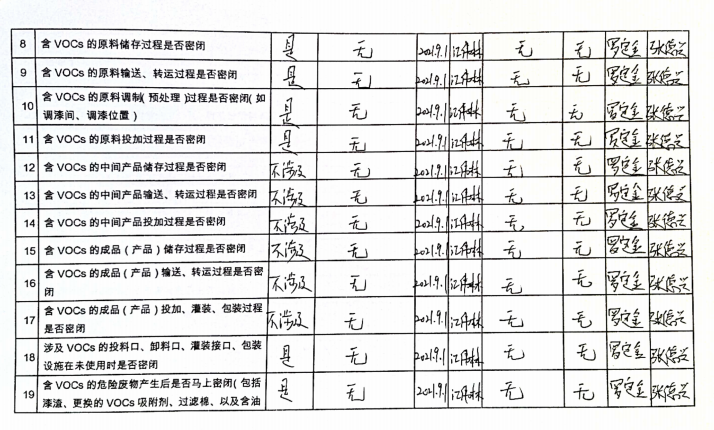 8 含 VOCs 的原料储存过程是否密闭 是 无 2021.9.1 无 无 罗定金 张德兴
9 含 VOCs 的原料输送、转运过程是否密闭 是 无 2021.9.1 无 无 罗定金 张德兴
10 含 VOCs 的原料调制( 预处理 )过程是否密闭( 如
调漆间、调漆位置 ) 是 无 2021.9.1 无 无 罗定金 张德兴
11 含 VOCs 的原料投加过程是否密闭 是 无 2021.9.1 无 无 罗定金 张德兴
12 含 VOCs 的中间产品储存过程是否密闭 不涉及 无 2021.9.1 无 无 罗定金 张德兴
13 含 VOCs 的中间产品输送、转运过程是否密闭 不涉及 无 2021.9.1 无 无 罗定金 张德兴
14 含 VOCs 的中间产品投加过程是否密闭 不涉及 无 2021.9.1 无 无 罗定金 张德兴
15 含 VOCs 的成品 ( 产品 ) 储存过程是否密闭 不涉及 无 2021.9.1 无 无 罗定金 张德兴
16 含 VOCs 的成品 ( 产品 ) 输送、转运过程是否密
闭 不涉及 无 2021.9.1 无 无 罗定金 张德兴
17 含 VOCs 的成品 ( 产品 ) 投加、灌装、包装过程
是否密闭 不涉及 无 2021.9.1 无 无 罗定金 张德兴
18 涉及 VOCs 的投料口、卸料口、灌装接口、包装
设施在未使用时是否密闭 是 无 2021.9.1 无 无 罗定金 张德兴
19 含 VOCs 的危险废物产生后是否马上密闭( 包括
漆渣、更换的 VOCs 吸附剂、过滤棉、以及含油 是 无 2021.9.1 无 无 罗定金 张德兴